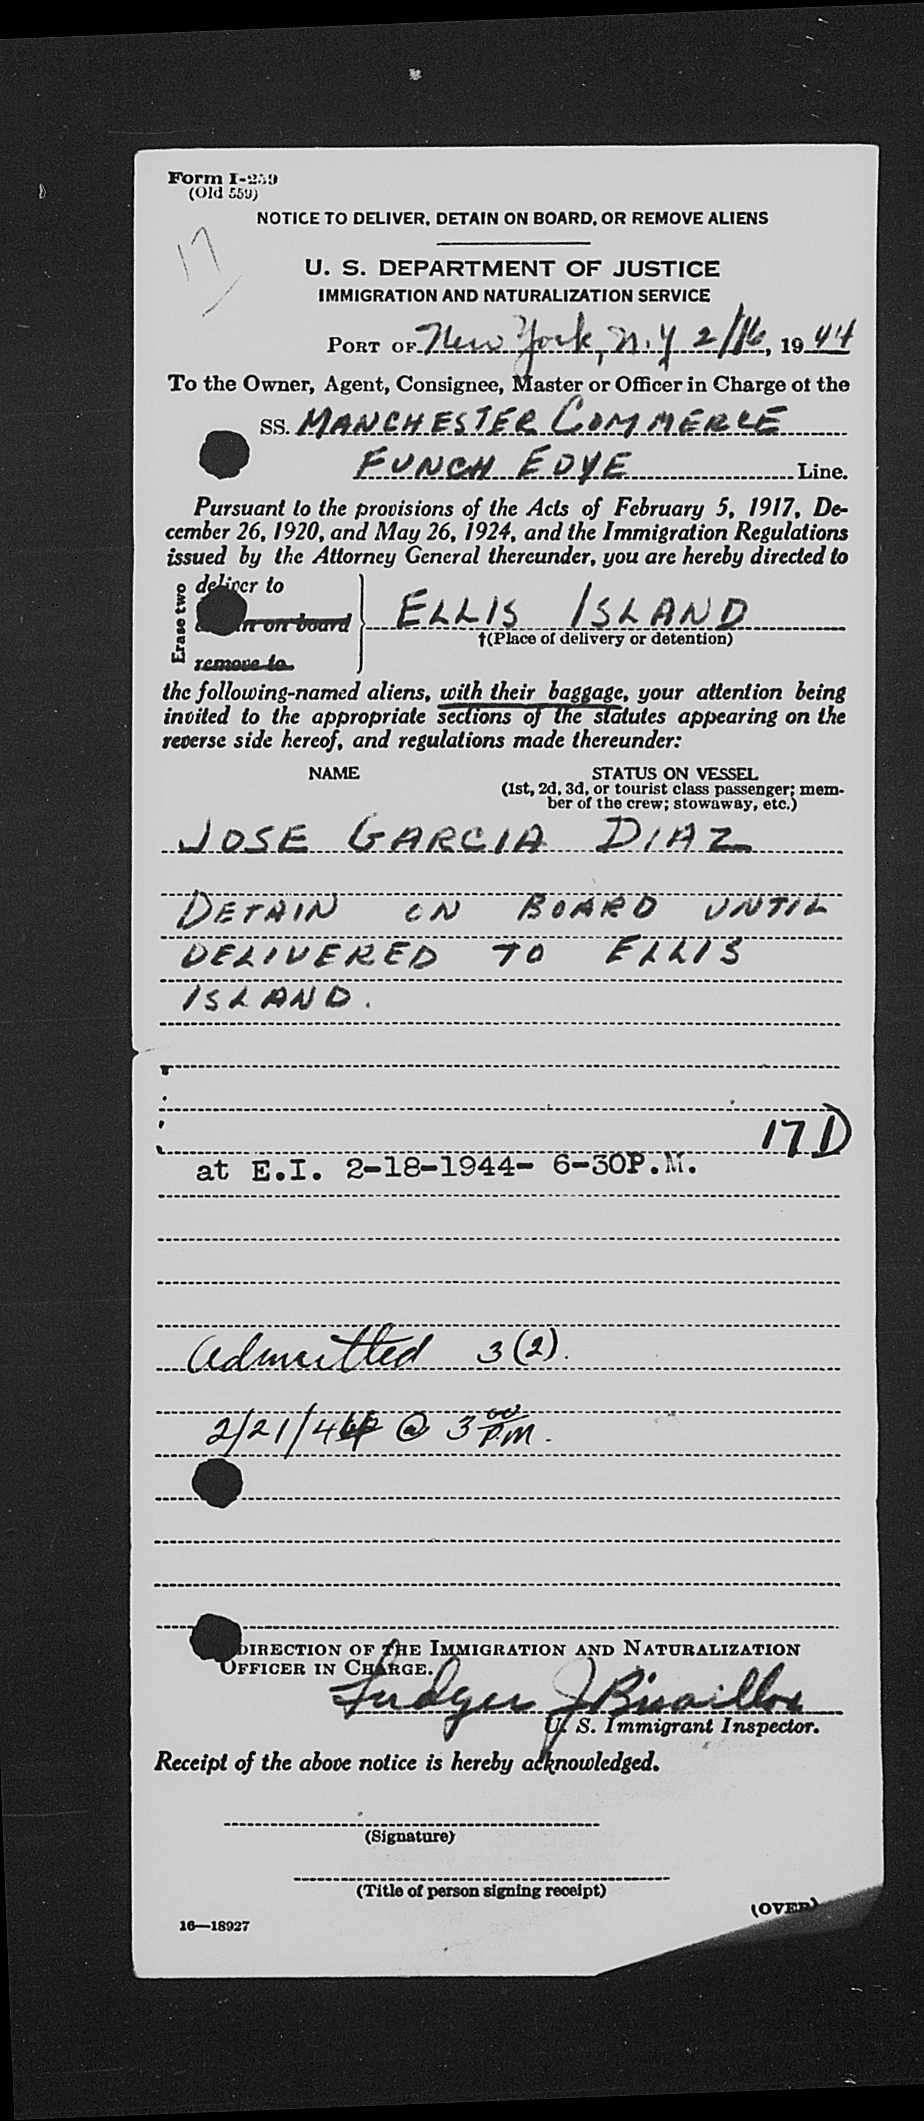 Form I-259
(Old 559)
NOTICE TO DELIVER, DETAIN ON BOARD, OR REMOVE ALIENS
17
U. S. DEPARTMENT OF JUSTICE
IMMIGRATION AND NATURALIZATION SERVICE
PORT OF New York, N.Y 2/16, 1944
To the Owner, Agent, Consignee, Master or Officer in Charge of the
SS. MANCHESTER COMMERCE
FUNCH EDYE Line.
Pursuant to the provisions of the Acts of February 5, 1917, De-
cember 26, 1920, and May 26, 1924, and the Immigration Regulations
issued by the Attorney General thereunder, you are hereby directed to
Erase two
deliver to
on board
remove to
ELLIS ISLAND
†(Place of delivery or detention)
the following-named aliens, with their baggage, your attention being
invited to the appropriate sections of the statutes appearing on the
reverse side hereof, and regulations made thereunder:
NAME STATUS ON VESSEL
(1st, 2d, 3d, or tourist class passenger; mem-
ber of the crew; stowaway, etc.)
JOSE GARCIA DIAZ
DETAIN ON BOARD UNTIL
DELIVERED TO ELLIS
ISLAND.
17 D
at E.I. 2-18-1944- 6-30P.M.
Admitted 3(2).
2/21/44 @ 3 00 P.M.
DIRECTION OF THE IMMIGRATION AND NATURALIZATION
OFFICER IN CHARGE.
Ludger J Bisaillon
U. S. Immigrant Inspector.
Receipt of the above notice is hereby acknowledged.
(Signature)
(Title of person signing receipt)
(OVER)
16—18927